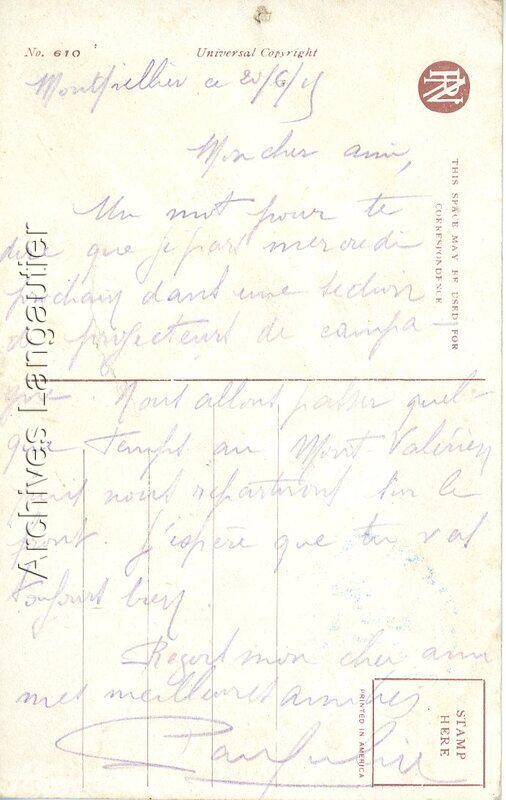 No. 610
Universal Copyright
Montpellier ce 20/6/15
Mon cher ami,
Un mot pour te
dire que je pars mercredi
prochain dans une section
de projecteurs de campa-
gne. Nous allons passer quel-
que temps au Mont Valérien
puis nous repartirons sur le
front. J'espère que tu vas
toujours bien.
Reçois mon cher ami
mes meilleures amitiés
THIS SPACE MAY BE USED FOR
CORRESPONDENCE
PRINTED IN AMERICA
STAMP
HERE
Archives Langautier